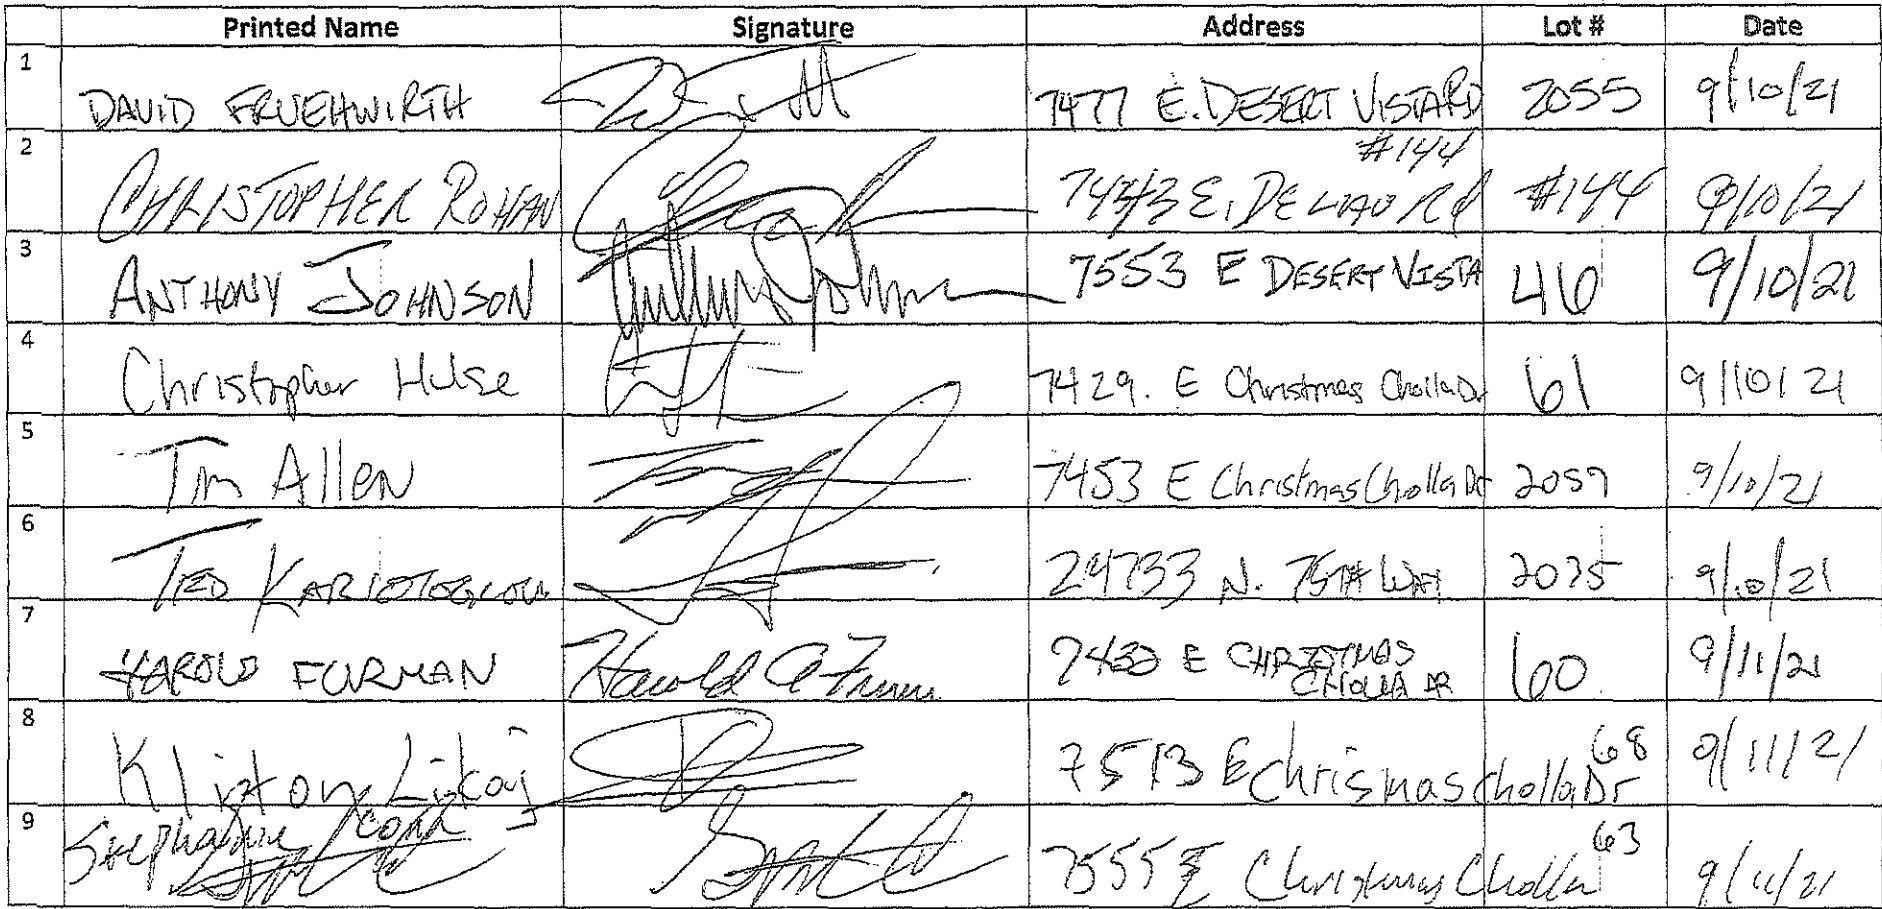 Printed Name Signature Address Lot # Date
1 DAVID FRUEHWIRTH 7477 E. DESERT VISTA RD 2055 9/10/21
2 #144
CHRISTOPHER ROHAN 7443 E. #144 9/10/21
3 ANTHONY JOHNSON Anthony Johnson 7553 E DESERT VISTA 46 9/10/21
4 Christopher Hulse 7429. E Christmas Cholla Dr 61 9/10/21
5 Tim Allen 7453 E Christmas Cholla Dr 2057 9/10/21
6 TED KARIOTOGLOU 24733 N. 75TH WAY 2035 9/10/21
7 HAROLD FURMAN Harold A Furman E CHRISTMAS
CHOLLA DR 60 9/11/21
8 Klinton Likaj 7513 E Chrismas Cholla Dr 68 9/11/21
9 Stephanie 7555 E Christmas Cholla 63 9/11/21